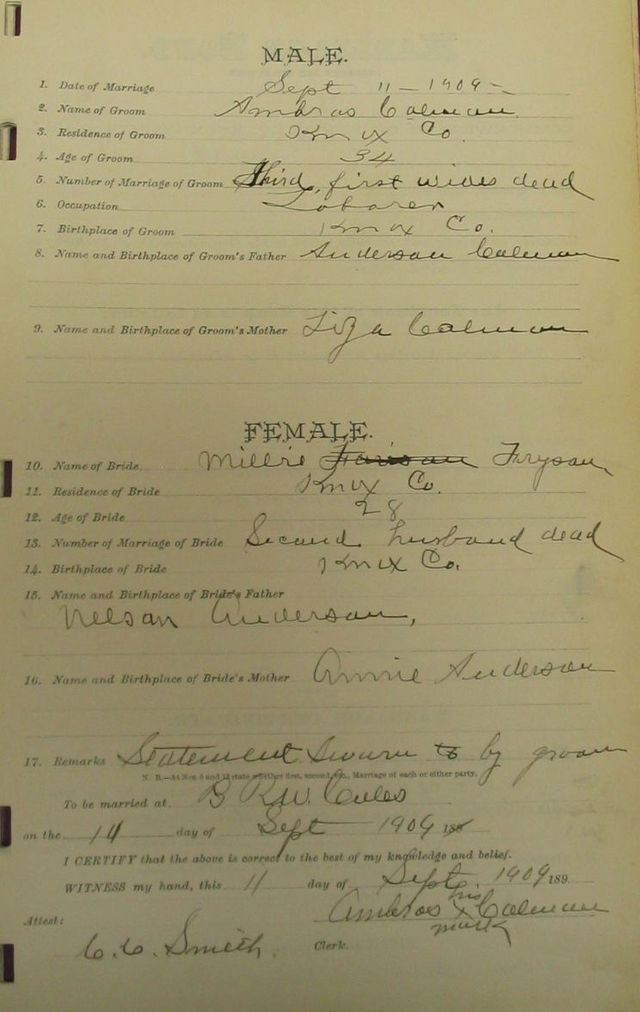 MALE.
1. Date of Marriage Sept 11 - 1909 -
2. Name of Groom Ambros Colman
3. Residence of Groom Knox Co.
4. Age of Groom 34
5. Number of Marriage of Groom Third, first wives dead
6. Occupation Laborer
7. Birthplace of Groom Knox Co.
8. Name and Birthplace of Groom's Father Anderson Colman
9. Name and Birthplace of Groom's Mother Liza Colman
FEMALE.
10. Name of Bride Millie Fryson
11. Residence of Bride Knox Co.
12. Age of Bride 28
13. Number of Marriage of Bride Second husband dead
14. Birthplace of Bride Knox Co.
15. Name and Birthplace of Bride's Father
Nelson Anderson,
16. Name and Birthplace of Bride's Mother Annie Anderson
17. Remarks Statement Sworn to by groom
N. B.—At Nos 5 and 13 state whether first, second, etc., Marriage of each or either party.
To be married at
on the 14 day of Sept 1909 189
I CERTIFY that the above is correct to the best of my knowledge and belief.
WITNESS my hand, this 11 day of Sept. 1909 189
his
Ambros x Colman
mark
Attest:
C. C. Smith Clerk.